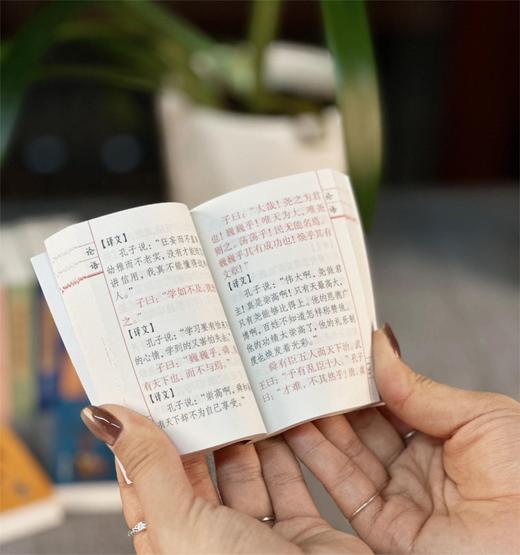 论
语
【译文】
孔子说：“狂妄而不直
幼稚而不老实，没有才能
讲信用，我真不能懂得这
人。”
子曰：“学如不及，
之。”
【译文】
孔子说：“学习要有怕来不
的心情，学到的又害怕失去
子曰：“巍巍乎，舜
有天下也，而不与焉。
【译文】
孔子说：“崇高啊，舜
有天下却不为自己享受。”
论
语
子曰：“大哉！尧之为君
也！巍巍乎！唯天为大，唯尧
则之。荡荡乎！民无能名焉。
巍巍乎其有成功也！焕乎其有
文章！”
【译文】
孔子说：“伟大啊，尧做君
主！真是崇高啊！只有天最高大，
只有尧能够比得上。他的恩惠广
博啊，百姓不知道怎样称赞他。
他的功绩太崇高了，他的礼乐制
度也焕发着光彩。”
舜有臣五人而天下治。武
王曰：“予有乱臣十人。”孔子
曰：“才难，不其然乎？唐、虞